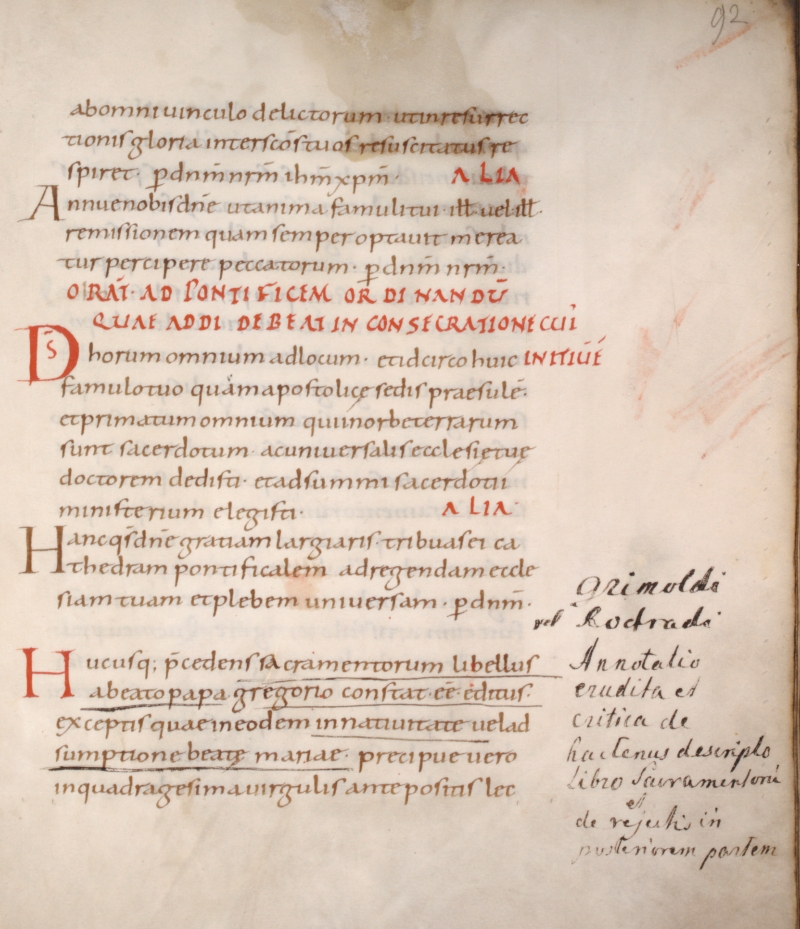 92
abomni uinculo delictorum · utinresurrec
tionis gloria interscōs tuos resuscitatus re
spiret · p̄ dnm̄ nrm̄ ihm̄ xpm̄ · ALIA
Annue nobis dn̄e ut anima famuli tui · ill̄ uel ill̄ ·
remissionem quam semper optauit merea
tur percipere peccatorum · p̄ dnm̄ nrm̄ ·
ORAT̄ · AD PONTIFICEM ORDINANDŪ
QUAE ADDI DEBEAT IN CONSECRATIONE CUI
Ds̄ horum omnium ad locum · et idcirco huic INITIUĒ
famulo tuo quam apostolicę sedis praesulē ·
et primatum omnium qui in orbe terrarum
sunt sacerdotum ac uniuersalis ecclesię tuę
doctorem dedisti · et ad summi sacerdotii
ministerium elegisti · ALIA
Hanc qs̄ dn̄e gratiam largiaris · tribuas ei ca
thedram pontificalem ad regendam eccle
siam tuam et plebem uniuersam · p̄ dnm̄ ·
Hucusq; p̄cedens sacramentorum libellus
a beato papa gregorio constat · eē editus ·
exceptis quae in eodem in natiuitate uel ad
sumptione beatę mariae · precipue uero
in quadragesima uirgulis antepositis lec
Grimoldi
vel Rodradi
Annotatio
erudita et
critica de
hactenus descripto
libro Sacramentorū
et
de rejectis in
posteriorem partem